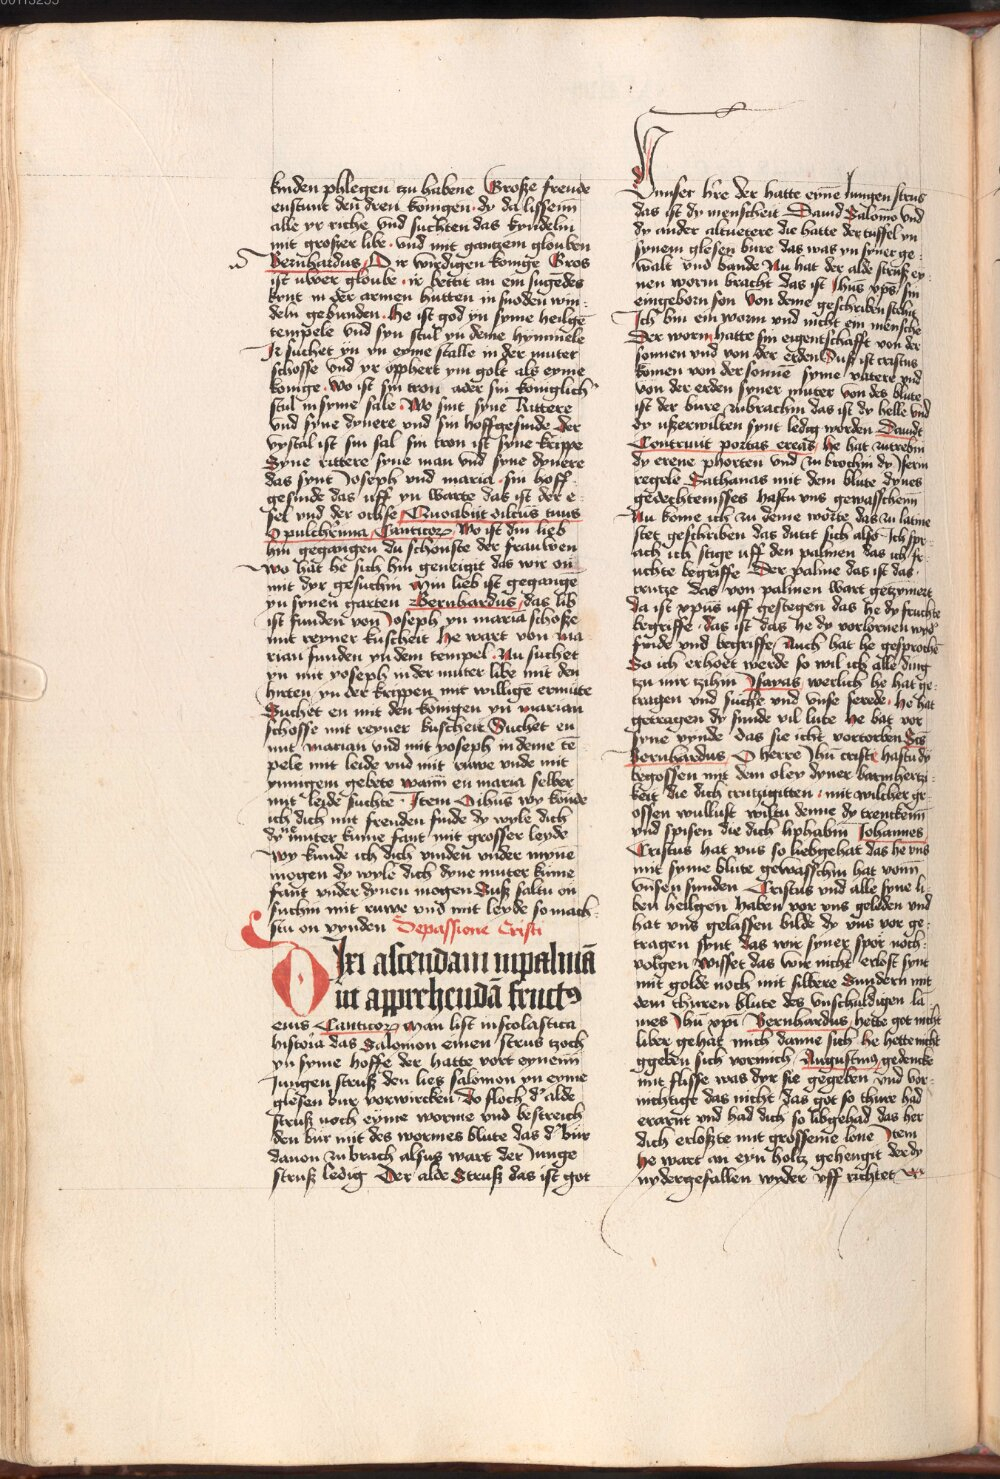 kinden phlegen tzu habene Große freude
enstunt den dren konigen · dy da lissenn
alle yr riche vnd suchten das kyndelin
mit großer libe · vnd mit gantzem glouben
Bernhardus O ir wirdigen konige Gros
ist uwer gloube · ir bettit an ein sugēdes
kynt in der armen hutten in snoden win-
deln gebunden · He ist god yn syme heilgē
tempele vnd syn stul yn deme hymmele
Ir suchet yn yn eyme stalle in der muter
schosse vnd yr opphert ym golt als eyme
konige · Wo ist sin tron ader sin koniglich
stul in syme sale · Wo sint syne Rittere
vnd syne dynere vnd sin hoffgesinde Der
vystal ist sin sal sin tron ist syne krippe
Syne rittere syne man vnd syne dynere
das synt Joseph vnd maria · sin hoff-
gesinde das uff yn warte das ist der e-
sel vnd der ochse Quo abijt dilctūs tuus
o pulcherrima Canticorz Wo ist din lieb
hin gegangen du schonste der frauwen
wo hat he sich hin geneigit das wir on
mit dyr gesuchin Min lieb ist gegangē
yn synen garten Bernhardus das lib
ist funden von Joseph yn maria schoße
mit reyner kuscheit He wart von ma-
rian funden yn dem tempel · Nu suchet
yn mit yoseph in der muter libe mit den
hirten yn der krippen mit willigē ermute
Suchet en mit den konigen yn marian
schosse mit reyner kuscheit Suchet en
mit marian vnd mit yoseph in deme tē
pele mit leide vnd mit ruwe vnde mit
ynnigem gebete wann en maria selber
mit leide suchte · Item O ihūs wy kōnde
ich dich mit freuden finde dy wyle dich
dyne muter kume fant mit grosser leyde
Wy kunde ich dich vinden vnder myne
mogen dy wyle dich dyne muter kume
fant vnder dynen mogen Suß saltu on
suchin mit ruwe vnd mit leyde so mach-
stu on vynden De passione Cristi
Dixi ascendam in palmā
ut apprehendā fruct9
eius Canticorz Man list in scolastica
historia das Salomon einen strus tzoch
yn syme hoffe der hatte vort eynenn
Jungen struß den lies salomon yn eyme
glesen bur vorwircken do floch d' alde
struß noch eyme worme vnd bestreich
den bur mit des wormes blute das d' bur
dauon zu brach alsus wart der Junge
struß ledig Der alde Struß das ist got
Vnnser h're der hatte eynē Jungen strus
das ist dy menscheit Dauid Salomo vnd
dy ander altuetere die hatte der tuffel yn
synem glesen bure das was yn syner ge-
walt vnd bande Nu hat der alde struß ey-
nen worm bracht das ist Jhūs xp̄s sin
eingeborn son von deme geschriben stehit
Ich bin ein worm vnd nicht ein mensche
Der worm hatte sin eigentschafft von der
sonnen vnd von der erden Suß ist cristus
komen von der sonnē syme vatere vnd
von der erden syner muter von des blute
ist der bure zubrachin das ist dy helle vnd
dy ußerwilten synt ledig worden Dauidt
Contriuit portas ereas He hat zutrebin
dy erene phorten vnd zubrochin dy Isern
regele Sathanas mit dem blute dynes
gedechtenisses hastu vns gewasschenn
Nu kome ich zu deme worte das zu latine
stet geschriben das dutit sich also Ich spr-
ach ich stige uff den palmen das ich fr-
uchte begriffe Der palme das ist das
crutze das von palmen wart getzymert
da ist xpūs uff gestegen das he dy fruchte
begriffe · das ist das he dy vorlornen wyd'
finde vnd begriffe Auch hat he gesprochē
So ich erhoet werde so wil ich alle ding
tzu mir tzihin Isayas werlich he hat ge-
tragen vnd suche vnd vnse serede · He hat
getragen dy sunde vil lute he bat vor
syne vynde das sie icht vortorben Scs
Bernhardus O herre Jhū criste hastu dy
begossen mit dem oley dyner barmhertzi-
keit die dich crutzigitten · mit wilcher ge-
ossen wullust wiltu denne dy trenckenn
vnd spisen die dich liphabin Johannes
Cristus hat vns so liebgehat das he vns
mit syme blute gewasschin hat vonn
vnsen sunden Cristus vnd alle syne li-
ben heilgen haben vor vns geleden vnd
hat vns gelassen bilde dy vns vor ge-
tragen synt das wir syner spor noch-
volgen wisset das wir nicht erlost synt
mit golde noch mit silbere Sundern mit
dem thuren blute des vnschuldigen la-
mes Jhū xpī Bernhardus hette got nicht
liber gehat mich danne sich he hette nicht
ggeben sich vor mich Augustinus gedencke
mit flisse was dyr sie gegeben vnd vor-
nichtige das nicht das got so thure had
erarnt vnd had dich so libgehad das her
dich erloszte mit grosseme lone Item
He wart an eyn holtz gehengit der dy
nydergefallen wyder vff richtet